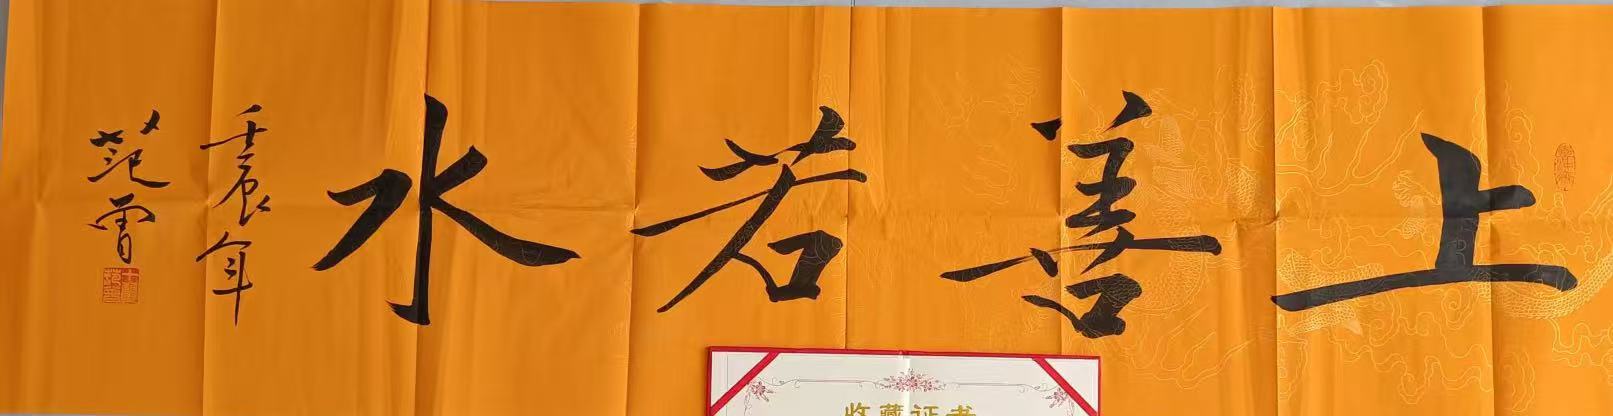 上善若水
壬辰年
范曾
收藏证书